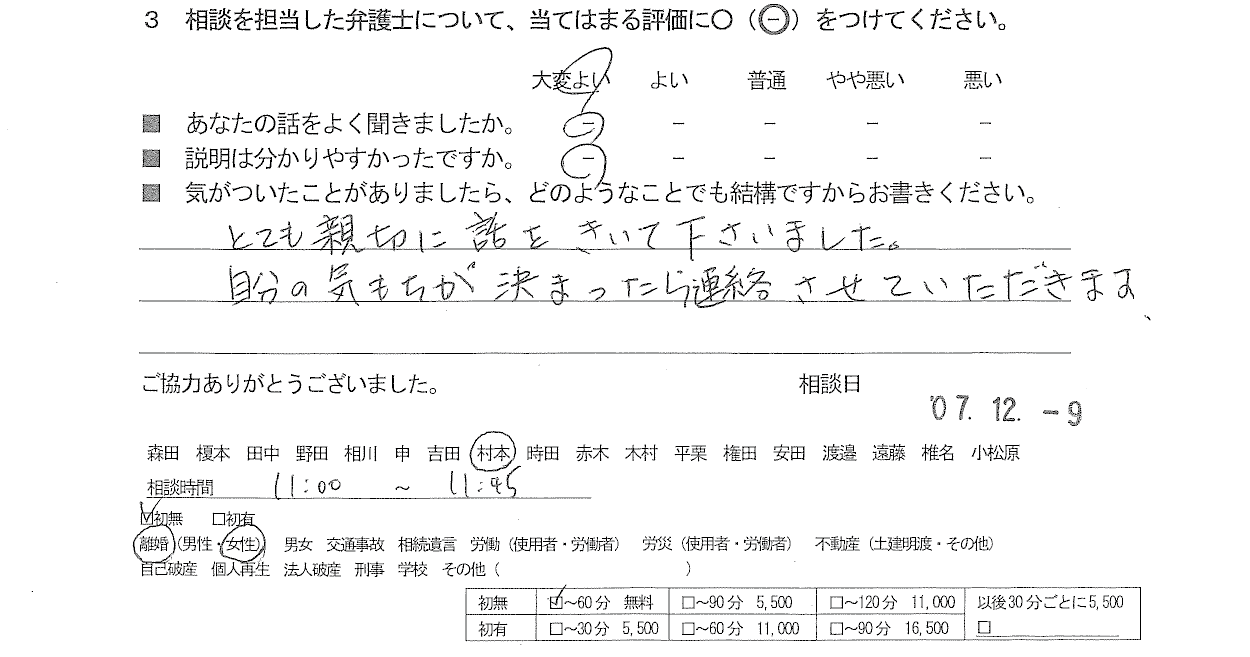 3 相談を担当した弁護士について、当てはまる評価に○（㊀）をつけてください。
大変よい よい 普通 やや悪い 悪い
■ あなたの話をよく聞きましたか。 － － － － －
■ 説明は分かりやすかったですか。 － － － － －
■ 気がついたことがありましたら、どのようなことでも結構ですからお書きください。
とても親切に話をきいて下さいました。
自分の気もちが決まったら連絡させていただきます、
ご協力ありがとうございました。 相談日
'07.12.-9
森田 榎本 田中 野田 相川 申 吉田 村本 時田 赤木 木村 平栗 権田 安田 渡邉 遠藤 椎名 小松原
相談時間 11:00 ～ 11:45
☑初無 □初有
離婚（男性・女性） 男女 交通事故 相続遺言 労働（使用者・労働者） 労災（使用者・労働者） 不動産（土建明渡・その他）
自己破産 個人再生 法人破産 刑事 学校 その他（ ）
初無 ☑～60分 無料 □～90分 5,500 □～120分 11,000 以後30分ごとに5,500
初有 □～30分 5,500 □～60分 11,000 □～90分 16,500 □